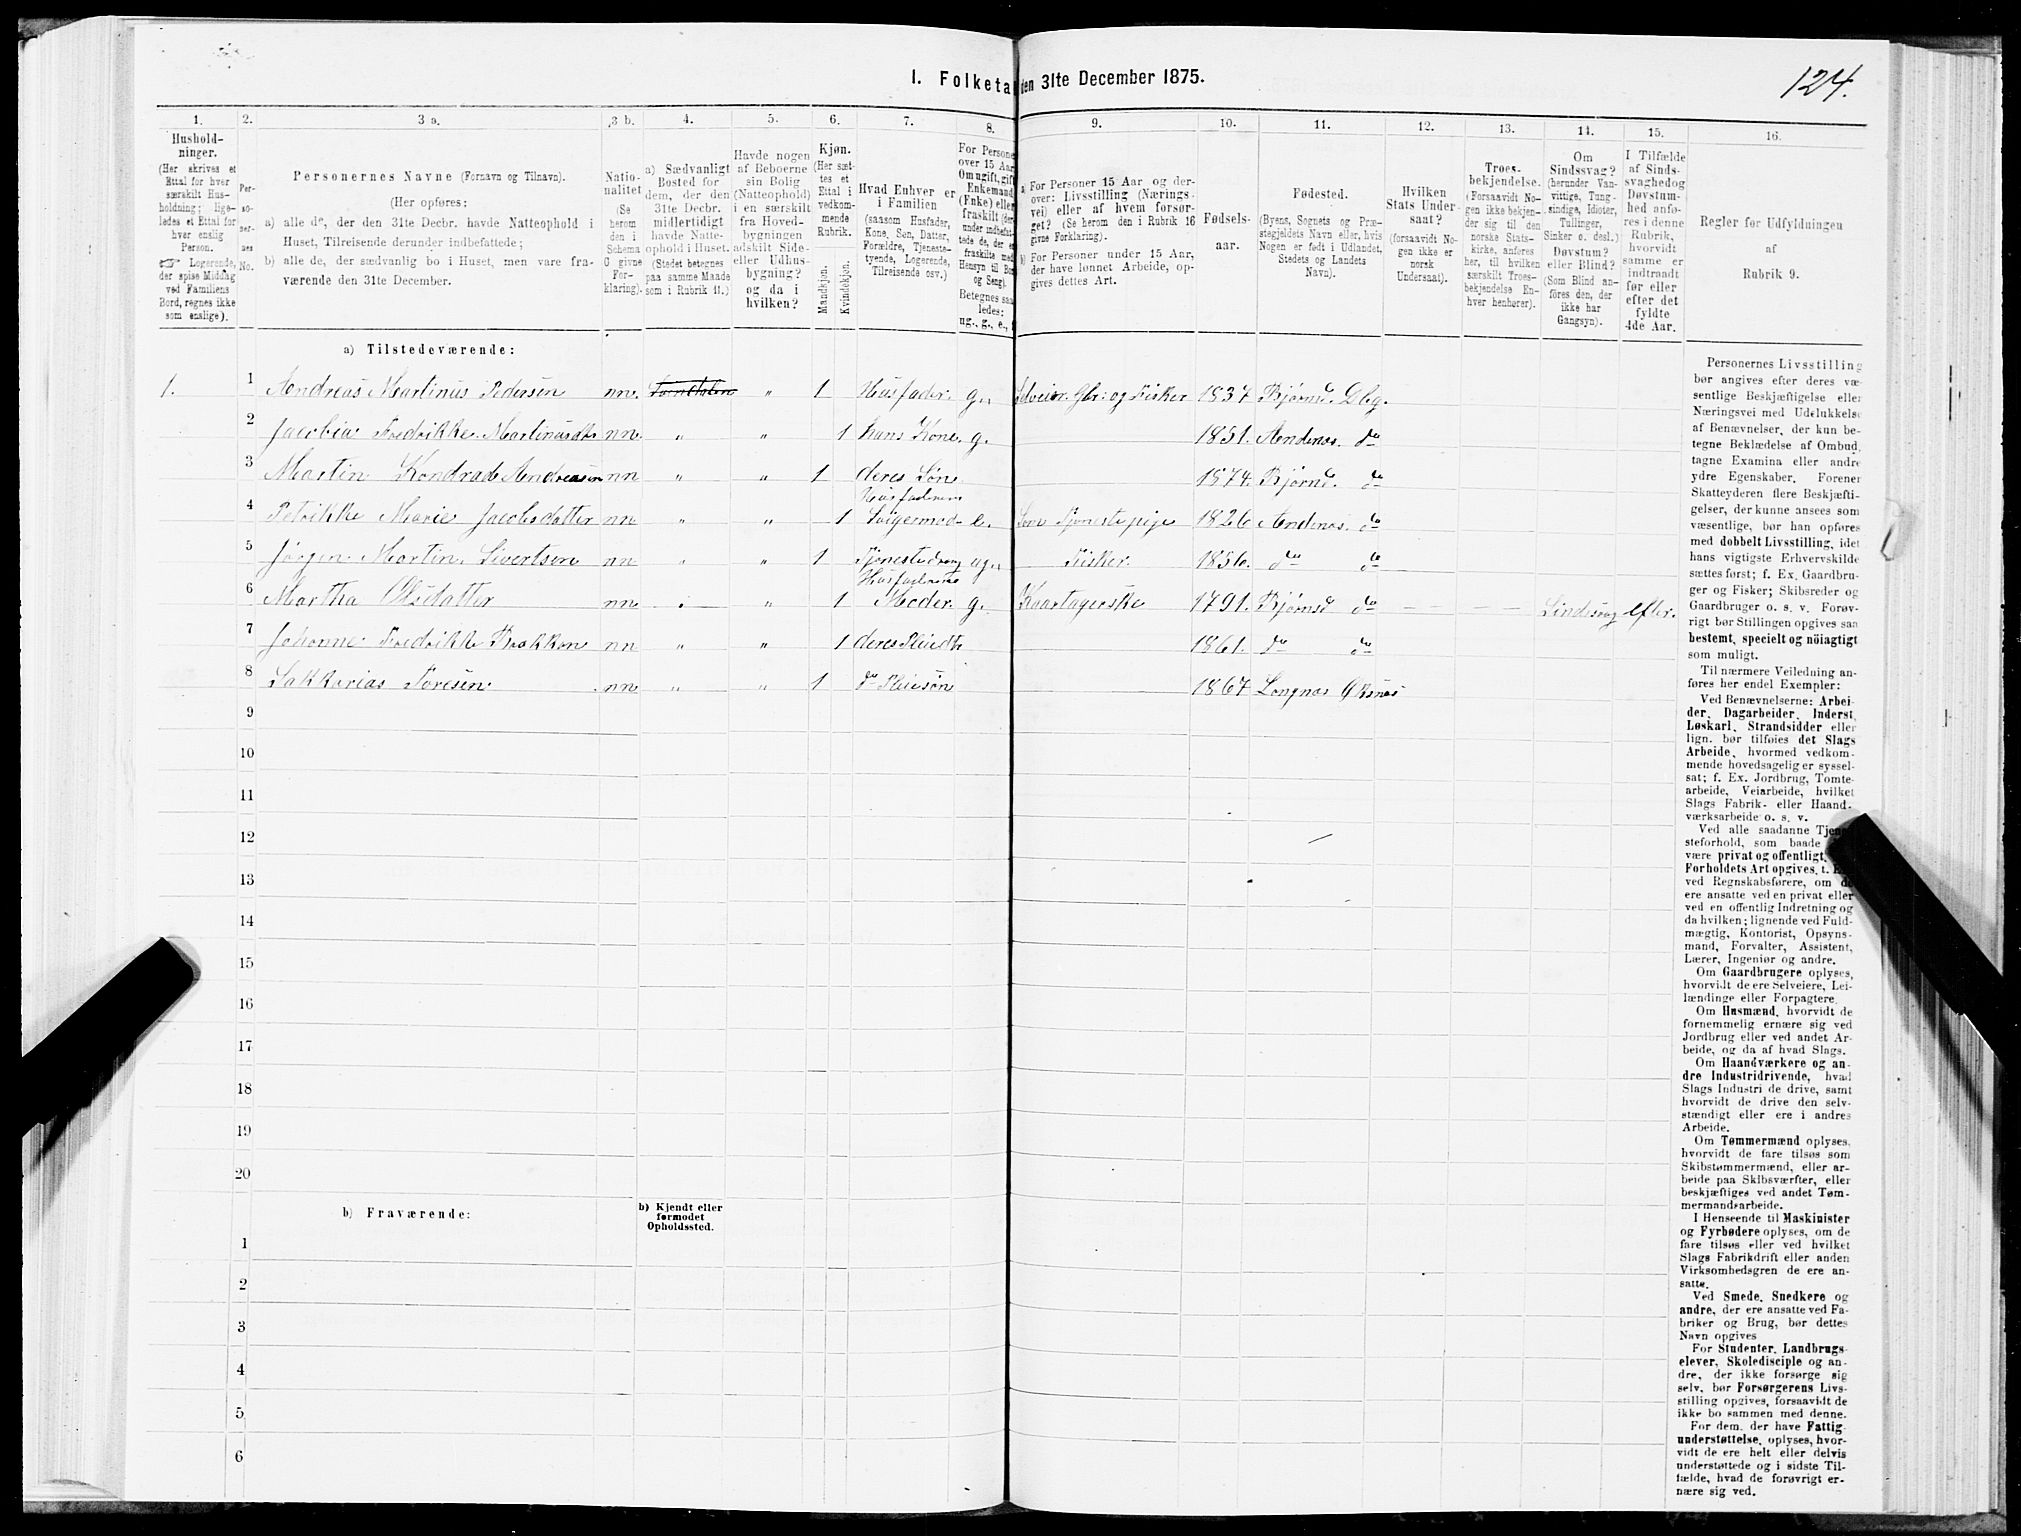 124.
I. Folketa den 31te December 1875.
1. 2. 3 a. 3 b. 4. 5. 6. 7. 8. 9. 10. 11. 12. 13. 14. 15. 16.
Hushold-
ninger.
(Her skrives et
Ettal for hver
særskilt Hus-
holdning; lige-
ledes et Ettal for
hver enslig
Person.
☞ Logerende,
der spise Middag
ved Familiens
Bord, regnes ikke
som enslige).
Per-
so-
ner-
nes
No.
Personernes Navne (Fornavn og Tilnavn).
(Her opføres:
a) alle de, der den 31te Decbr. havde Natteophold i
Huset, Tilreisende derunder indbefattede;
b) alle de, der sædvanlig bo i Huset, men vare fra-
værende den 31te December.
Natio-
nalitet
(Se
herom
den i
Schema
C givne
For-
klaring).
a) Sædvanligt
Bosted for
dem, der den
31te Decbr.
midlertidigt
havde Natte-
ophold i Huset.
(Stedet betegnes
paa samme Maade
som i Rubrik 11.)
Havde nogen
af Beboerne
sin Bolig
(Natteophold)
i en særskilt
fra Hoved-
bygningen
adskilt Side-
eller Udhus-
bygning?
og da i
hvilken?
Kjøn.
(Her sæt-
tes et
Ettal i
vedkom-
mende
Rubrik.
Mandkjøn.
Kvindekjøn.
Hvad Enhver er
i Familien
(saasom Husfader,
Kone, Søn, Datter,
Forældre, Tjeneste-
tyende, Logerende,
Tilreisende osv.)
For Persone
over 15 Aar
Om ugift, gift
Enkemand
(Enke) elle
fraskilt (der
under indbefat-
tede de, der er
fraskilte med
Hensyn til Bor
og Seng).
Betegnes saa
ledes:
ug., g., e., f
a For Personer 15 Aar og der-
over: Livsstilling (Nærings-
vei) eller af hvem forsør-
get? (Se herom den i Rubrik 16
givne Forklaring).
b) For Personer under 15 Aar,
der have lønnet Arbeide, op-
gives dettes Art.
Fødsels-
aar.
Fødested.
(Byens, Sognets og Præ-
stegjeldets Navn eller, hvis
Nogen er født i Udlandet,
Stedets og Landets
Navn).
Hvilken
Stats Under-
saat?
(forsaavidt No-
gen ikke er
norsk
Undersaat).
Troes-
bekjendelse.
(Forsaavidt No-
gen ikke bekjen-
der sig til den
norske Stats-
kirke, anføres
her, til hvilken
særskilt Troes-
bekjendelse En-
hver henhører).
Om
Sindssvag?
(herunder Van-
vittige, Tung-
sindige, Idioter,
Tullinger,
Sinker o. desl.)
Døvstum?
eller Blind?
(Som Blind an-
føres den, der
ikke har
Gangsyn).
I Tilfælde
af Sinds-
svaghed og
Døvstum-
hed anfø-
res i denne
Rubrik,
hvorvidt
samme er
indtraadt
før eller
efter det
fyldte
4de Aar.
Regler for Udfyldningen
af
Rubrik 9.
a) Tilstedeværende:
1. 1 Andreas Martinus Pedersen nn. Forndalen " 1 Husfader. g. Selveier. Gbr: og Fisker 1837 Bjørns. Dbg.
2 Jacobia Fredrikke Martinusdtr nn. " " 1 hans Kone. g. 1851. Andenæs. do
3 Martin Kondrad Andreasen nn " " 1 deres Søn 1874. Bjørns. do
4 Petrikke Marie Jacobsdatter nn " " 1 Husfaderens Svigermod. e. Tjenestepige 1826 Andenæs. do
5 Jørgen Martin Sivertsen nn " " 1 Tjenestedreng ug. Fisker. 1856. do do
6 Martha Olsdatter nn " " 1 Husfaderens Moder. g. Kaartagerske 1791. Bjørnsd do — — — efter.
7 Johanne Fredrikke nn " " 1 deres Pleidtr 1861. do do
8 Sakkarias Toresen. nn " " 1 do Pleisøn 1867 Langnæs Øksnæs
9
10
11
12
13
14
15
16
17
18
19
20
b) Fraværende:
b) Kjendt eller
formodet
Opholdssted.
1
2
3
4
5
6
Personernes Livsstilling
bør angives efter deres væ-
sentlige Beskjæftigelse eller
Næringsvei med Udelukkelse
af Benævnelser, der kun be-
tegne Beklædelse af Ombud,
tagne Examina eller andre
ydre Egenskaber. Forener
Skatteyderen flere Beskjæfti-
gelser, der kunne ansees som
væsentlige, bør han opføres
med dobbelt Livsstilling, idet
hans vigtigste Erhvervskilde
sættes først; f. Ex. Gaardbru-
ger og Fisker; Skibsreder og
Gaardbruger o. s. v. Forøv-
rigt bør Stillingen opgives saa
bestemt, specielt og nöiagtigt
som muligt.
Til nærmere Veiledning an-
føres her endel Exempler:
Ved Benævnelserne: Arbei-
der, Dagarbeider, Inderst,
Løskarl, Strandsidder eller
lign. bør tilføies det Slags
Arbeide, hvormed vedkom-
mende hovedsagelig er syssel-
sat; f. Ex. Jordbrug, Tomte-
arbeide, Veiarbeide, hvilket
Slags Fabrik- eller Haand-
værksarbeide o. s. v.
Ved alle saadanne Tjene-
steforhold, som baade
være privat og offentligt,
Forholdets Art opgives, t. E
ved Regnskabsførere, om de
ere ansatte ved en privat eller
ved en offentlig Indretning og
da hvilken; lignende ved Fuld-
mægtig, Kontorist, Opsyns-
mand, Forvalter, Assistent,
Lærer, Ingeniør og andre.
Om Gaardbrugere oplyses,
hvorvidt de ere Selveiere, Lei-
lændinge eller Forpagtere.
Om Husmænd, hvorvidt de
fornemmelig ernære sig ved
Jordbrug eller ved andet Ar-
beide, og da af hvad Slags.
Om Haandværkere og an-
dre Industridrivende, hvad
Slags Industri de drive, samt
hvorvidt de drive den selv-
stændigt eller ere i andres
Arbeide.
Om Tømmermænd oplyses,
hvorvidt de fare tilsøs som
Skibstømmermænd, eller ar-
beide paa Skibsværfter, eller
beskjæftiges ved andet Tøm-
mermandsarbeide.
I Henseende til Maskinister
og Fyrbødere oplyses, om de
fare tilsøs eller ved hvilket
Slags Fabrikdrift eller anden
Virksomhedsgren de ere an-
satte.
Ved Smede, Snedkere og
andre, der ere ansatte ved Fa-
briker og Brug, bør dettes
Navn opgives
For Studenter, Landbrugs-
elever, Skoledisciple og an-
dre, der ikke forsørge sig
selv, bør Forsørgerens Livs-
stilling opgives, forsaavidt de
ikke bo sammen med denne.
For dem, der have Fattig-
understøttelse, oplyses, hvor-
vidt de ere helt eller delvis
understøttede og i sidste Til-
fælde, hvad de forøvrigt er-
nære sig ved.